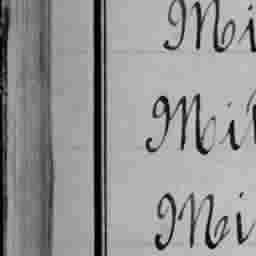 Mi
Mi
Mi